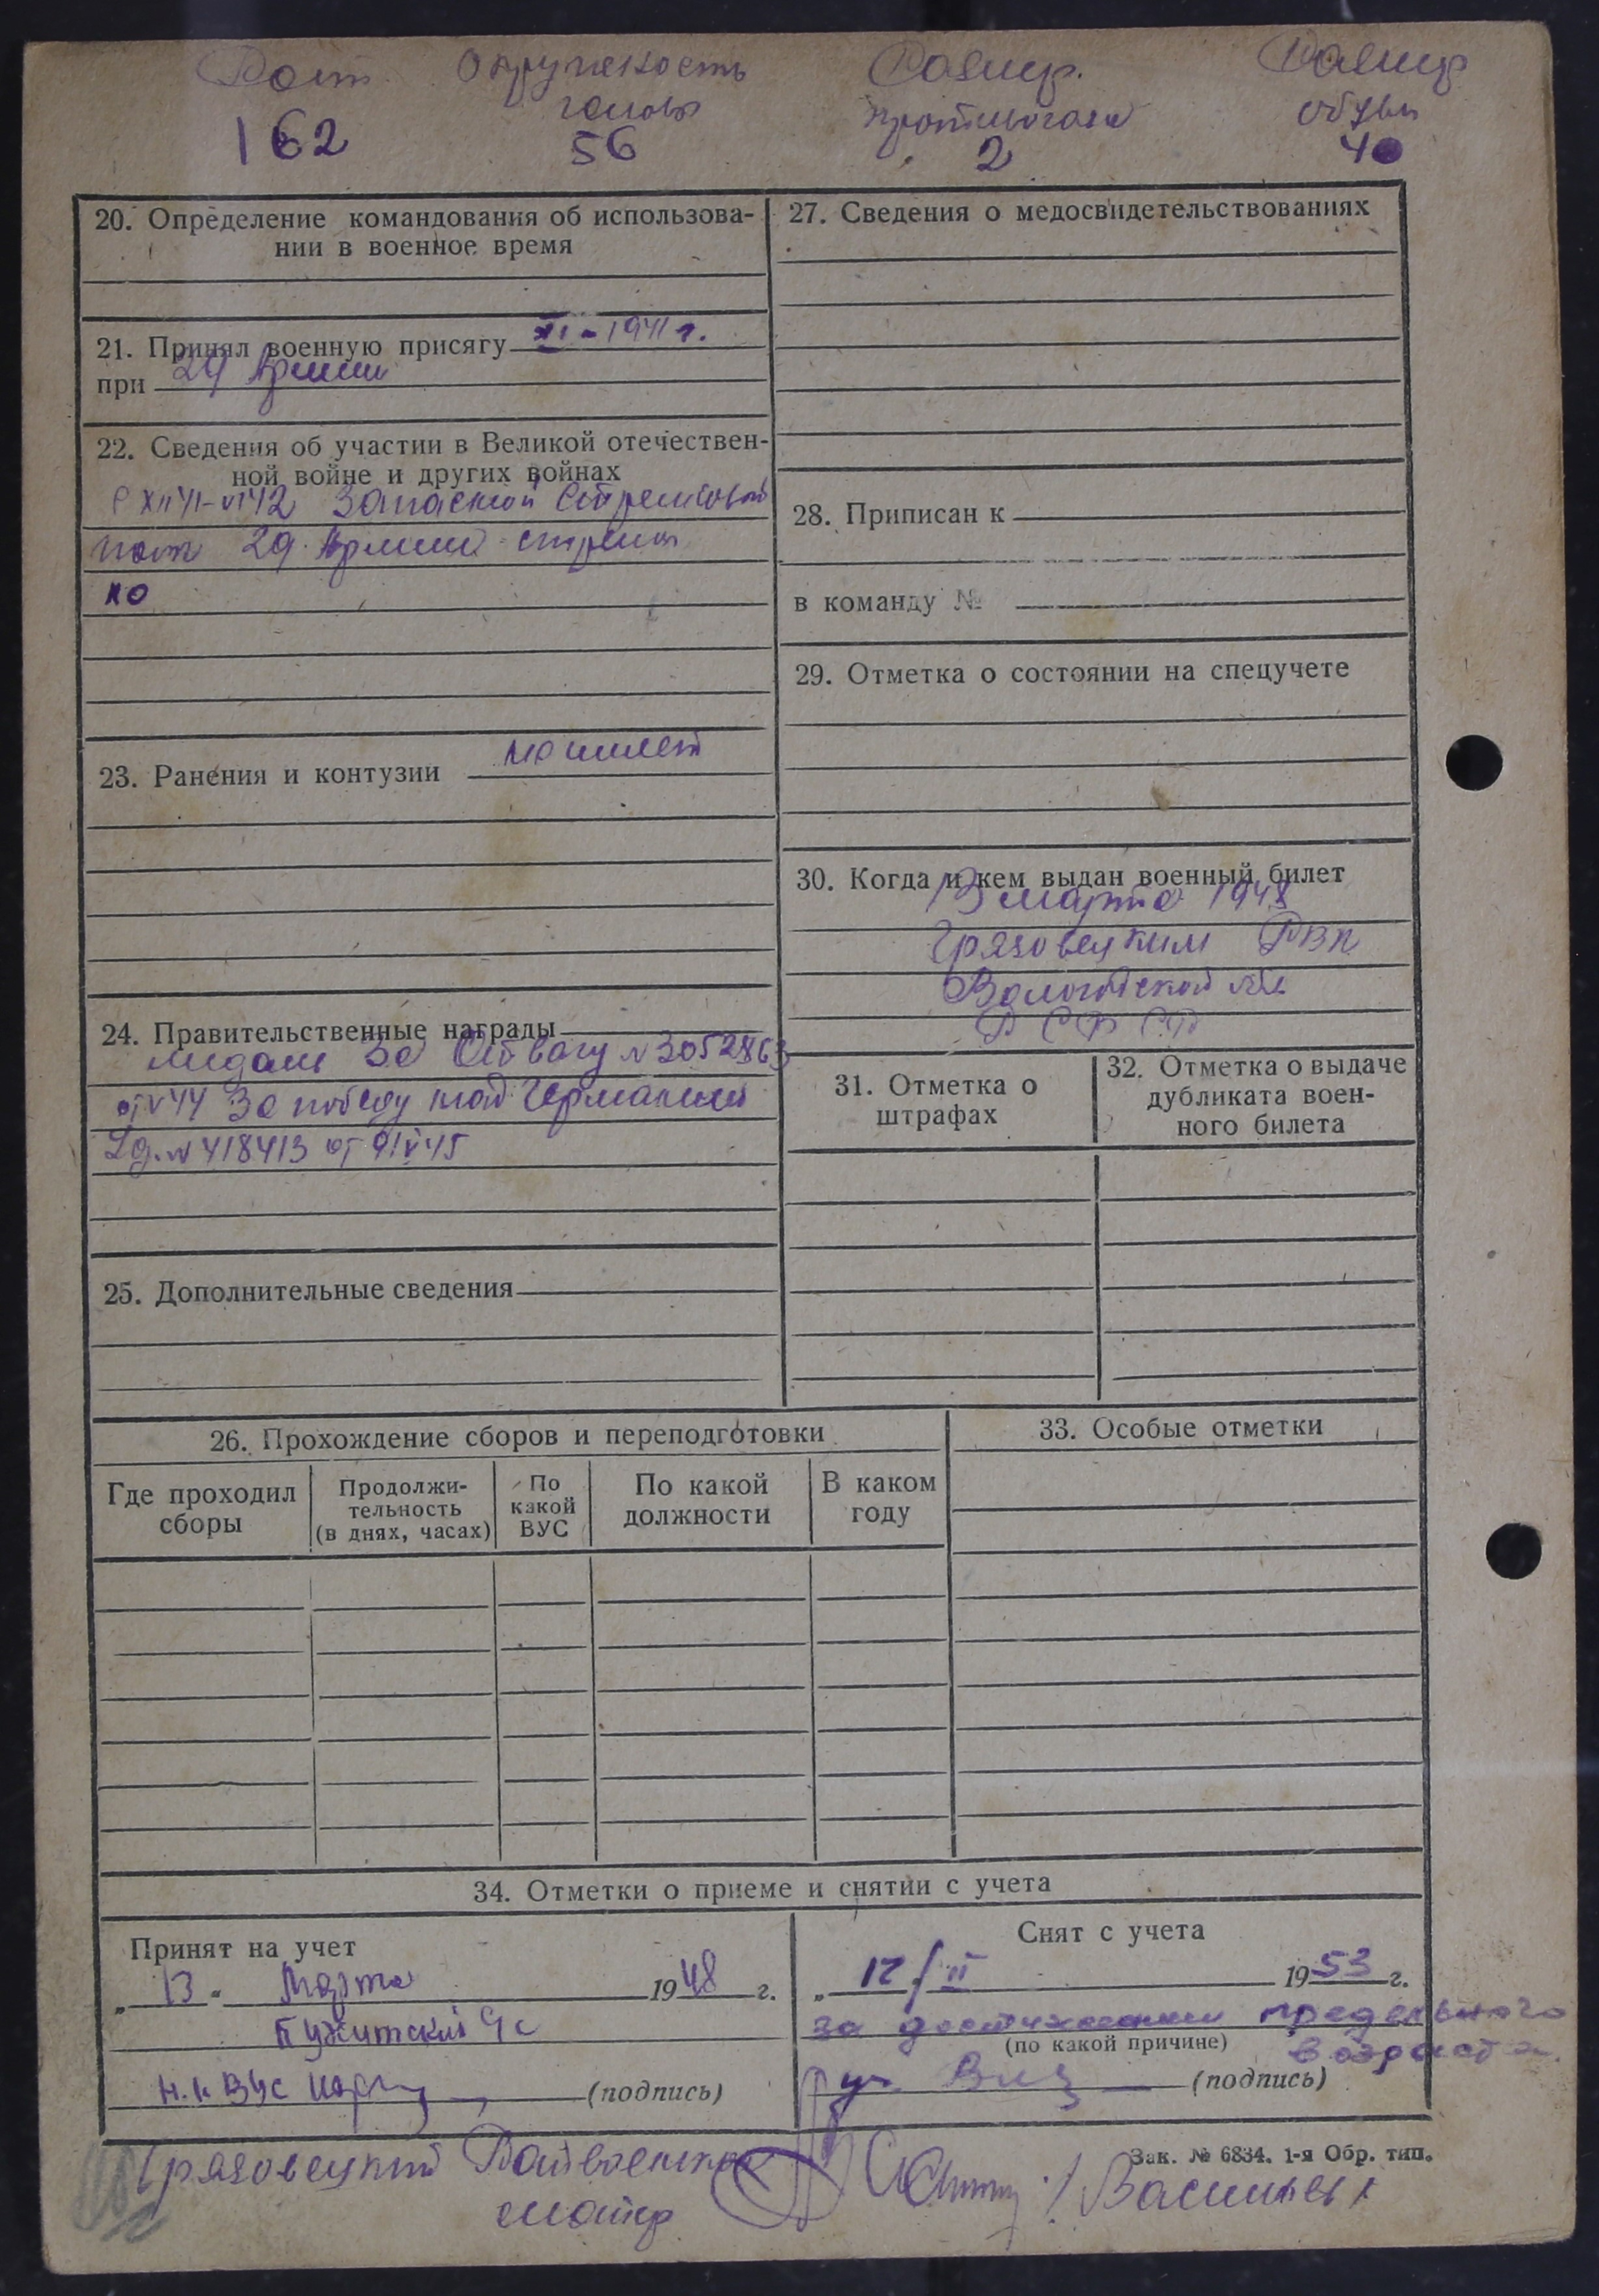 Рост Окружность Размер Размер
головы противогаза обуви
162 56 2 40
20. Определение командования об использова-
нии в военное время
21. Принял военную присягу XI-1941 г.
при 29 Армии
22. Сведения об участии в Великой отечествен-
ной войне и других войнах
с XII 41-VI 42 Запасной Стрелковый
полк 29 Армии стрело
ко
23. Ранения и контузии не имеет
24. Правительственные награды
медаль За Отвагу N 3052863
от V 44 За победу над Германией
N 418413 от 9/V 45
25. Дополнительные сведения
27. Сведения о медосвидетельствованиях
28. Приписан к
в команду №
29. Отметка о состоянии на спецучете
30. Когда и кем выдан военный билет
13 марта 1948
Грязовецким РВК
Вологодской обл
РСФСР
31. Отметка о
штрафах
32. Отметка о выдаче
дубликата воен-
ного билета
26. Прохождение сборов и переподготовки
Где проходил
сборы
Продолжи-
тельность
(в днях, часах)
По
какой
ВУС
По какой
должности
В каком
году
33. Особые отметки
34. Отметки о приеме и снятии с учета
Принят на учет
„ 13 " Марта 1948 г.
с
(подпись)
Снят с учета
„ 12/II 1953 г.
за достижением предельного
(по какой причине) возраста
(подпись)
Зак. № 6834. 1-я Обр. тип.
Грязовецкий Райвоенком
майор /Васильев/